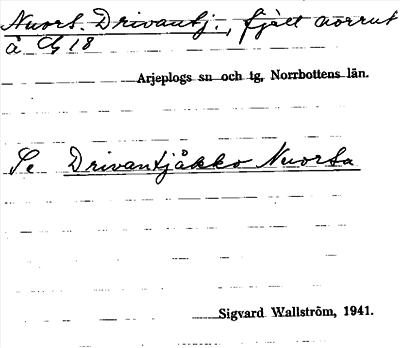 Nuort. Drivantj., fjäll norrut
å G 18
Arjeplogs sn och tg, Norrbottens län.
Se Drivantjåkko Nuorta
Sigvard Wallström, 1941.